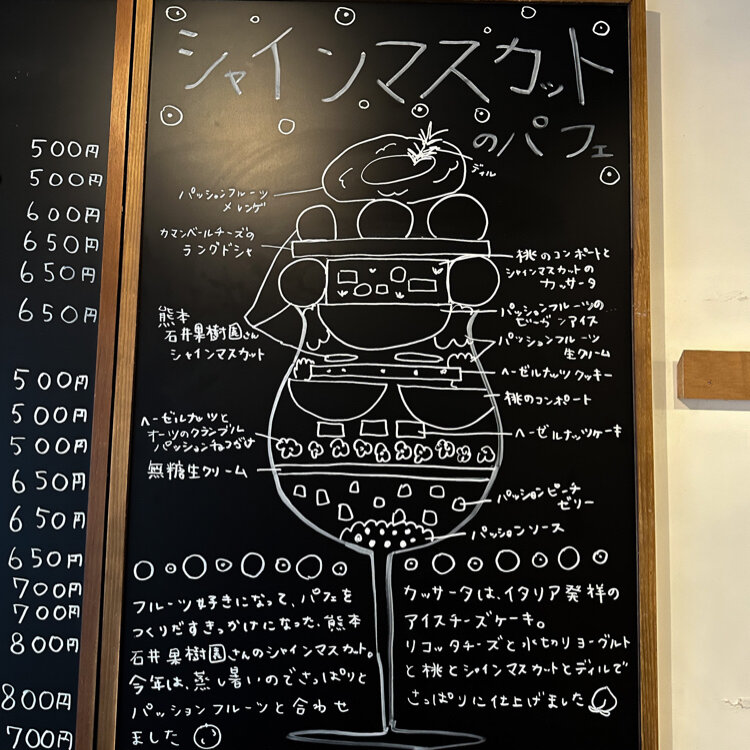 500円
500円
600円
650円
650円
650円
500円
500円
500円
650円
650円
650円
700円
700円
800円
800円
700円
シャインマスカット
のパフェ
ディル
パッションフルーツ
メレンゲ
カマンベールチーズの
ラングドシャ
熊本
石井果樹園さん
シャインマスカット
ヘーゼルナッツと
オーツのクランブル
パッションチョコがけ
無糖生クリーム
桃のコンポートと
シャインマスカットの
カッサータ
パッションフルーツの
ビーガンアイス
パッションフルーツ
生クリーム
ヘーゼルナッツクッキー
桃のコンポート
ヘーゼルナッツケーキ
パッションピーチ
ゼリー
パッションソース
フルーツ好きになって、パフェを
つくりだすきっかけになった、熊本
石井果樹園さんのシャインマスカット。
今年は、蒸し暑いのでさっぱりと
パッションフルーツと合わせ
ました
カッサータは、イタリア発祥の
アイスチーズケーキ。
リコッタチーズと水切りヨーグルト
と桃とシャインマスカットとディルで
さっぱりに仕上げました